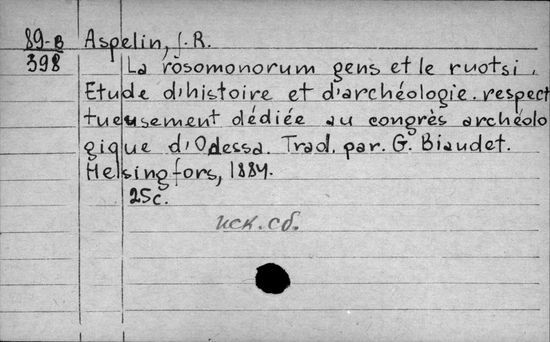 89-В Aspelin, J. R.
398 La rosomonorum gens et le ruotsi.
Etude d'histoire et d'archéologie. respect
tueusement dédiée au congrès archéolo
gique d'Odessa. Trad. par. G. Biaudet.
Helsingfors, 1884.
25c.
иск. сб.